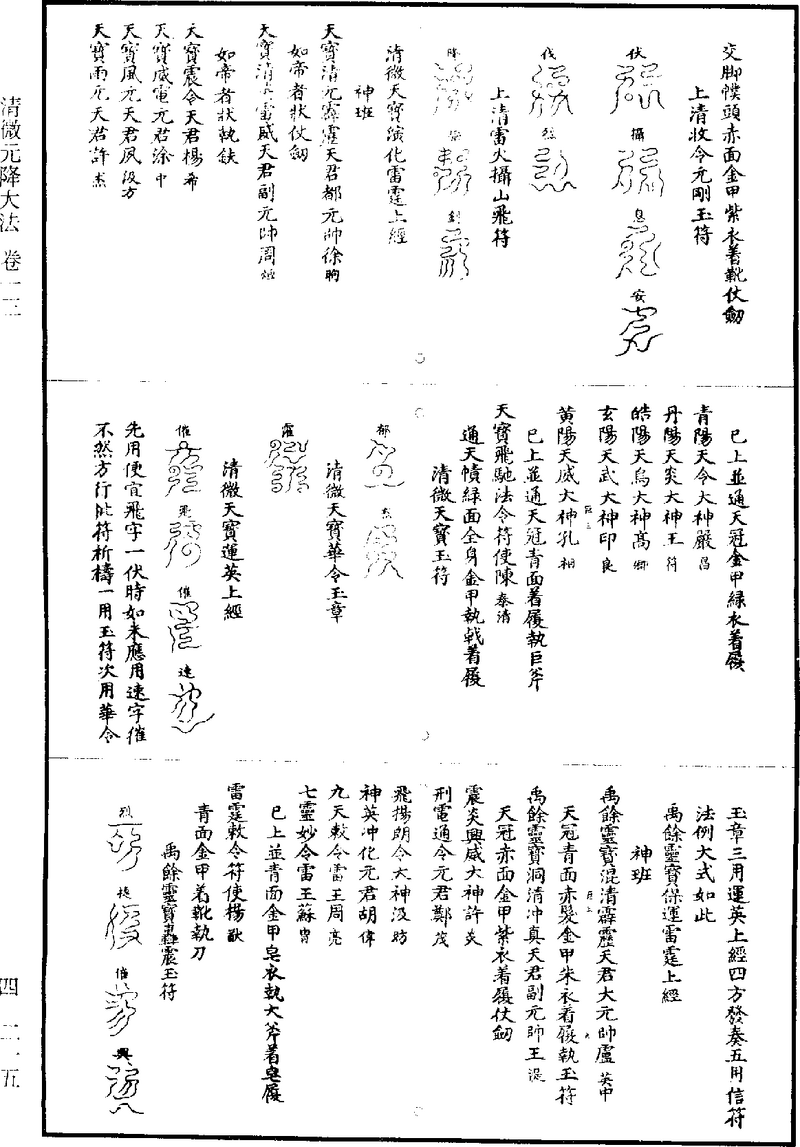 清微元降大法 卷一三
四 二一五
交脚幞頭赤面金甲紫衣著靴仗劔
上清收令元剛玉符
伏 攝 息 安
伐 烈
上清雷火攝山飛符
降 封
清微天寶演化雷霆上經
神班
天寶清元霹靂天君都元帥徐昫
如帝者狀仗劔
天寶清 雷威天君副元帥周
如帝者狀執鈇
天寶震令天君楊希
天寶威電元君涂中
天寶風元天君夙汲方
天寶雨元天君許杰
已上並通天冠金甲緑衣著履
青陽天令大神嚴昌
丹陽天炎大神王符
皓陽天烏大神髙卿
玄陽天武大神印良
黄陽天威大神孔相
已上並通天冠青面著履執巨斧
天寶飛馳法令符使陳泰清
通天幘緑面全身金甲執戟著履
清微天寶玉符
都 杰
清微天寶華令玉章
霍
清微天寶運英上經
催 飛 催 速
先用便宜飛字一伏時如未應用速字催
不然方行此符祈禱一用玉符次用華令
玉章三用運英上經四方發奏五用信符
法例大式如此
禹餘靈寶保運雷霆上經
神班
禹餘靈寶混清霹靂天君大元帥盧英中
天冠青面赤髮金甲朱衣著履執玉符
禹餘靈寶洞清冲真天君副元帥王湜
天冠赤面金甲紫衣著履仗劔
震炎興威大神許炎
刑電通令元君鄭茂
飛揚朗令大神汲昉
神英冲化元君胡偉
九天敕令雷王周亮
七靈妙令雷王蘇胄
已上並青面金甲皂衣執大斧著皂履
雷霆敕令符使楊猷
青面金甲著靴執刀
禹餘靈寶轟震玉符
烈 捉 催 興